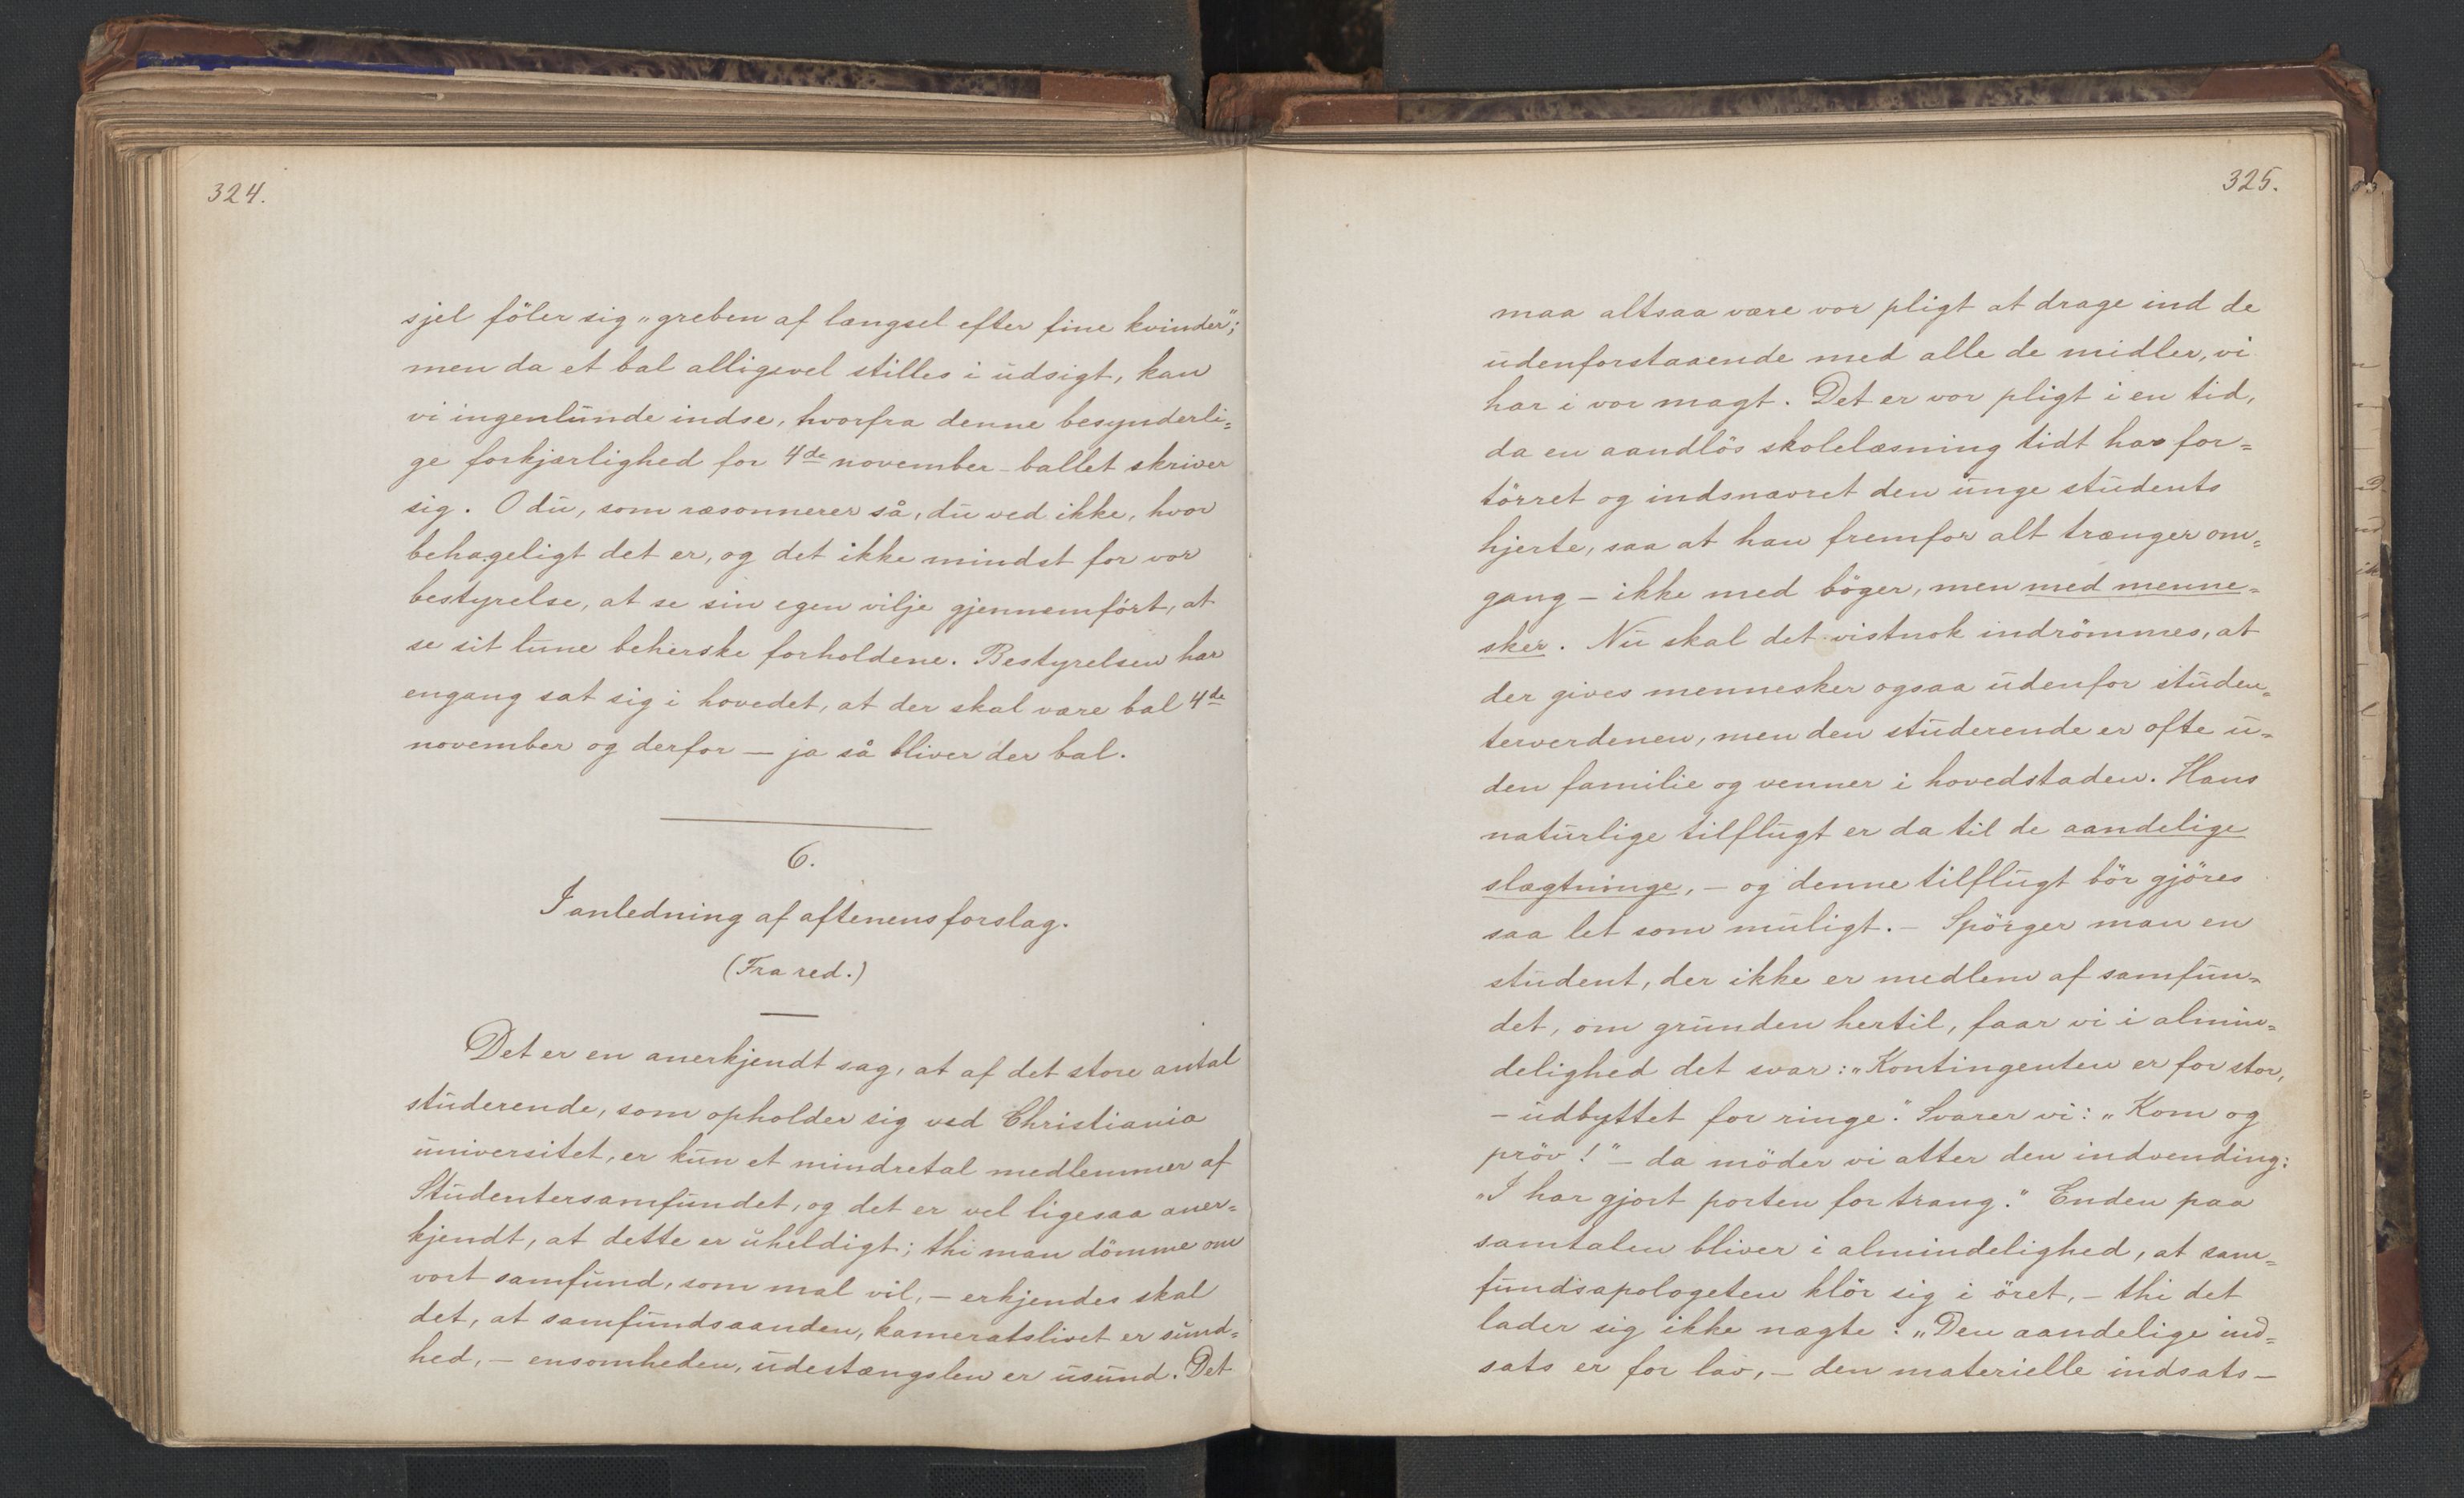 324.
sjel föler sig „greben af længsel efter fine kvinder";
men da et bal alligevel stilles i udsigt, kan
vi ingenlunde indse, hvorfra denne besynderli=
ge forkjærlighed for 4de november-ballet skriver
sig. O du, som ræsonnerer så, du ved ikke, hvor
behageligt det er, og det ikke mindst for vor
bestyrelse, at se sin egen vilje gjennemført, at
se sit lune beherske forholdene. Bestyrelsen har
engang sat sig i hovedet, at der skal være bal 4de
november og derfor — ja så bliver der bal.
6.
I anledning af aftenens forslag.
(Fra red.)
Det er en anerkjendt sag, at af det store antal
studerende, som opholder sig ved Christiania
universitet, er kun et mindretal medlemmer af
Studentersamfundet, og det er vel ligesaa aner=
kjendt, at dette er uheldigt; thi man dömme om
vort samfund, som mal vil, — erkjendes skal
det, at samfundsaanden, kameratslivet er sund=
hed, — ensomheden, udestængslen er usund. Det
325.
maa altsaa være vor pligt at drage ind de
udenforstaaende med alle de midler, vi
har i vor magt. Det er vor pligt i en tid,
da en aandlös skolelæsning tidt har for=
törret og indsnævret den unge students
hjerte, saa at han fremfor alt trænger om=
gang — ikke med böger, men med menne=
sker. Nu skal det vistnok indrömmes, at
der gives mennesker ogsaa udenfor studen=
terverdenen, men den studerende er ofte u=
den familie og venner i hovedstaden. Hans
naturlige tilflugt er da til de aandelige
slægtninge, — og denne tilflugt bör gjöres
saa let som muligt. — Spörger man en
student, der ikke er medlem af samfun=
det, om grunden hertil, faar vi i almin=
delighed det svar: „Kontingenten er for stor,
— udbyttet for ringe." Svarer vi: „Kom og
pröv!" — da möder vi atter den indvending:
„I har gjort porten for trang." Enden paa
samtalen bliver i almindelighed, at sam=
fundsapologeten klör sig i öret, — thi det
lader sig ikke nægte: „Den aandelige ind=
sats er for lav, — den materielle indsats —